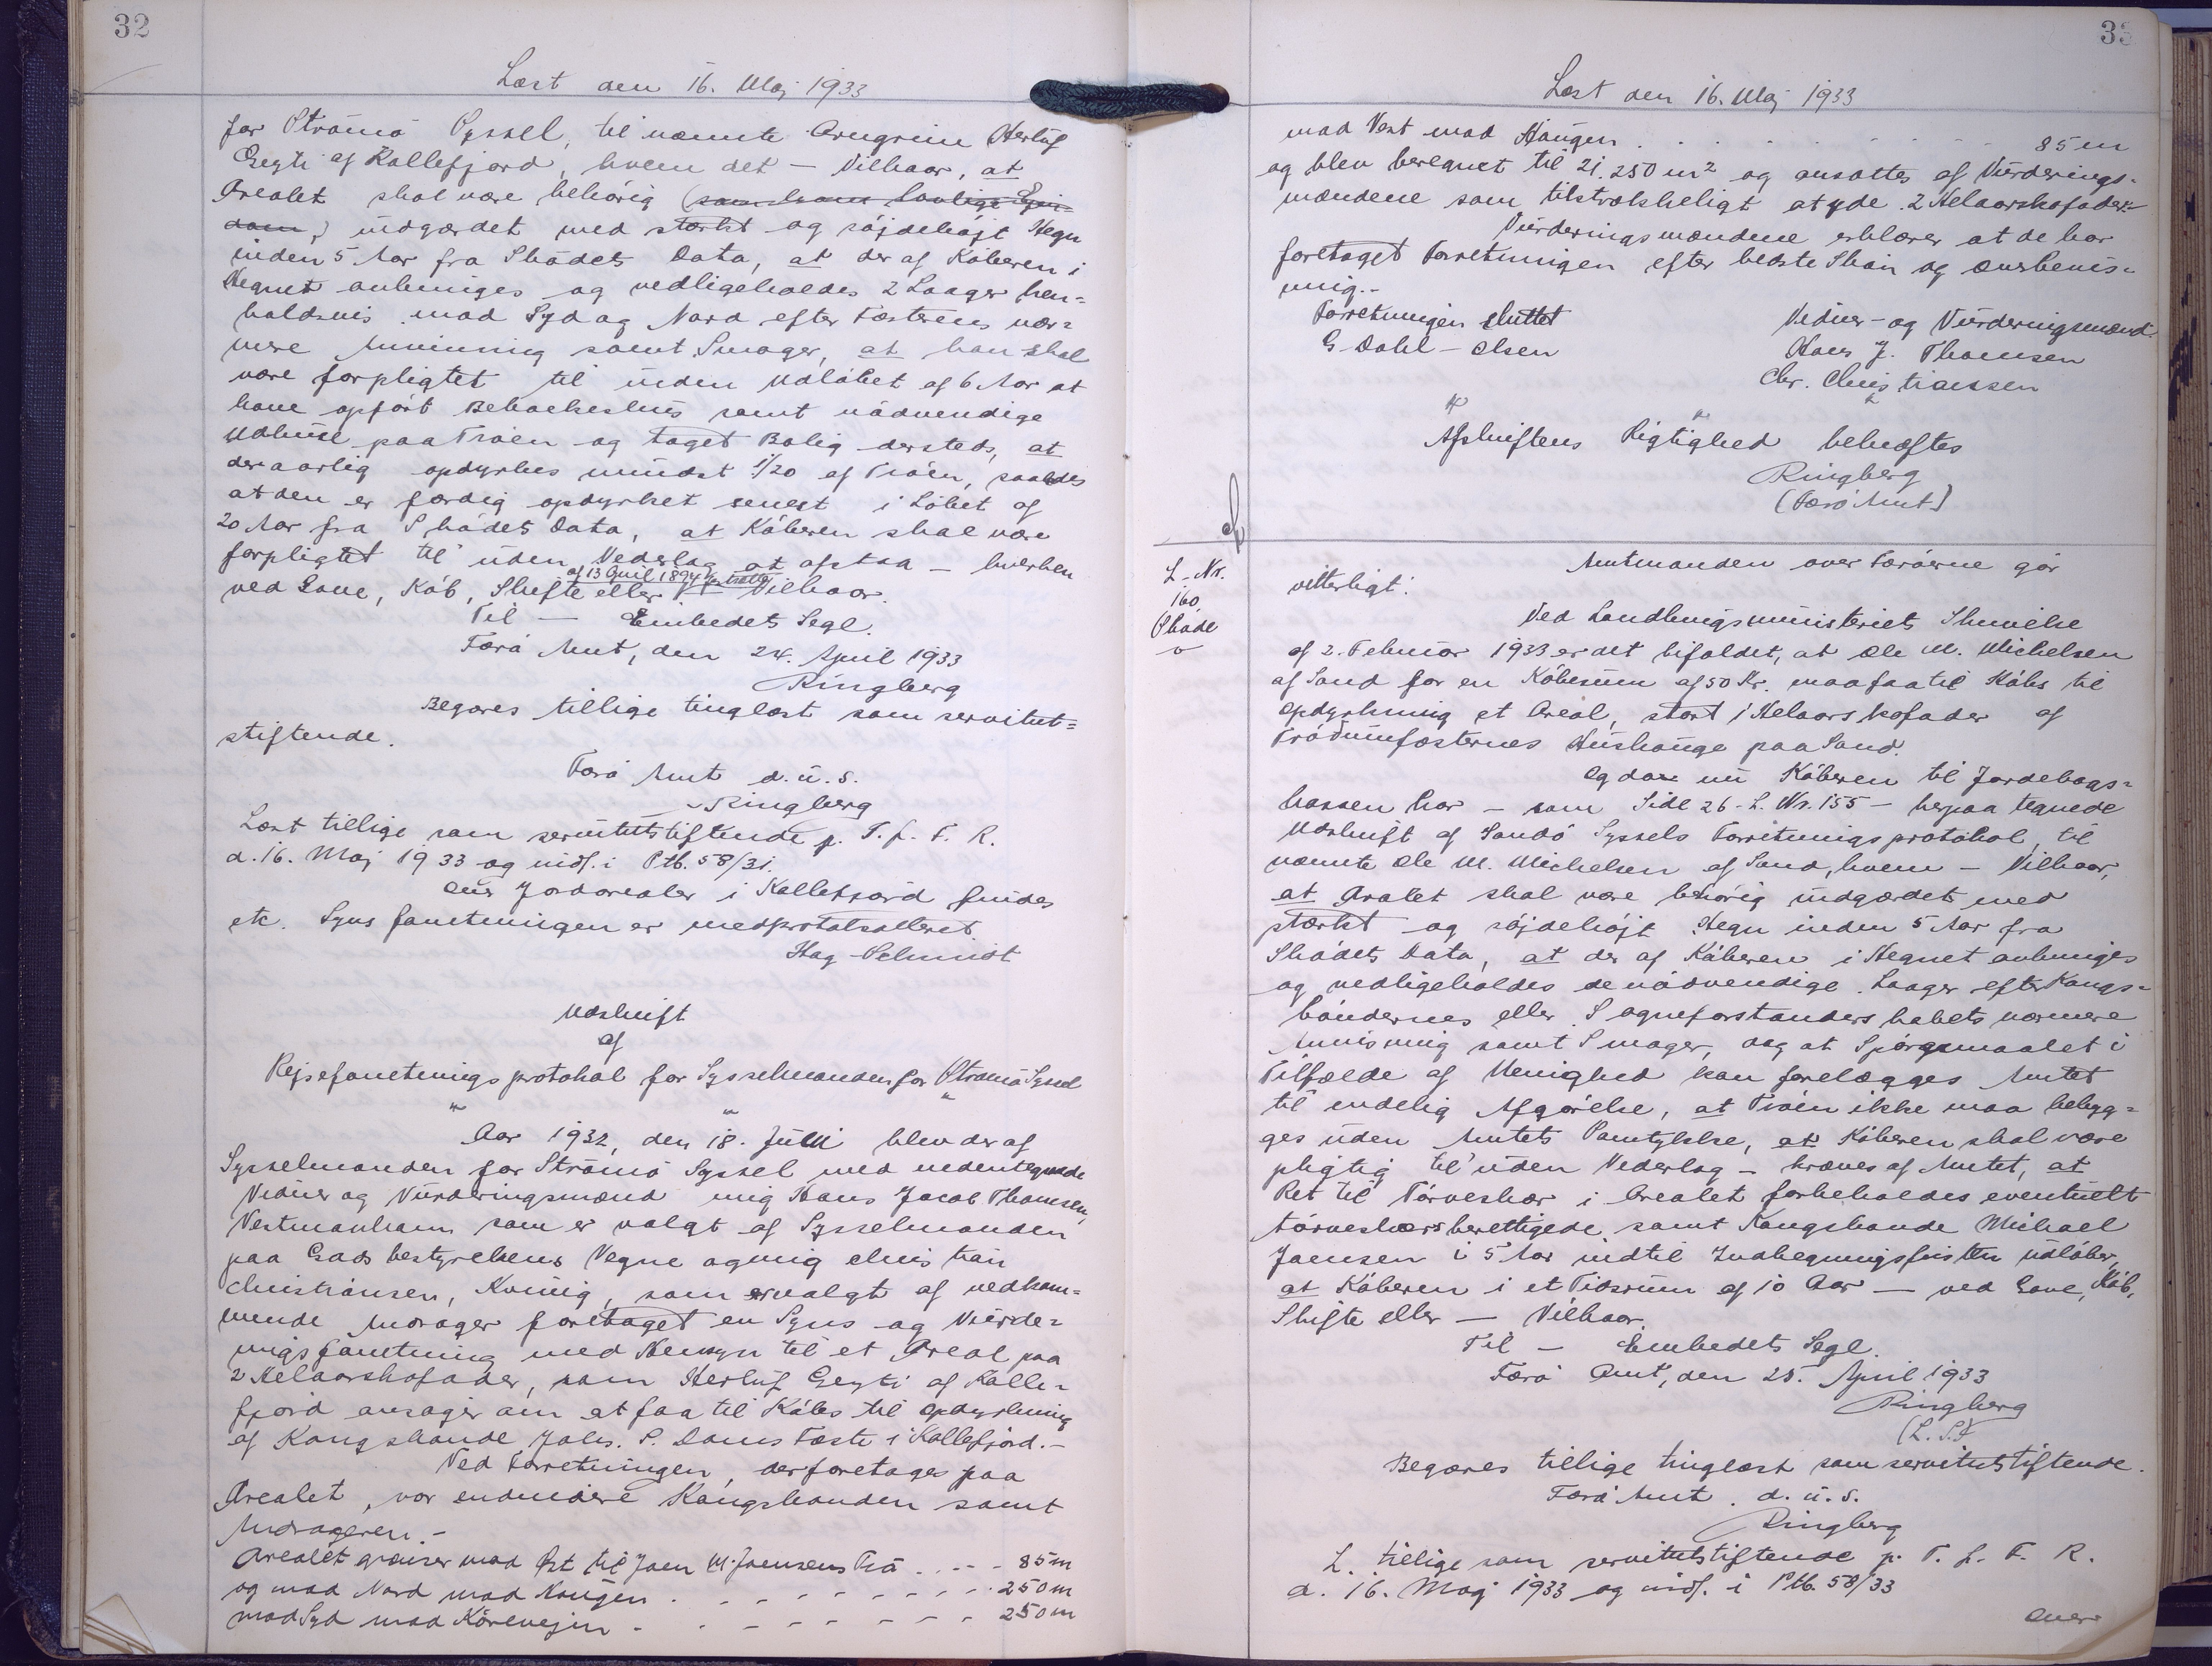 32
Læst den 16. Maj 1933
for Strömö Syssel, til nævnte Arngrim Herluf
Geyti af Kollefjord, hvem det — Vilkaar, at
Arealet skal være behörig (som hans lovlige Ejen-
dom,) indgærdet med stærkt og söjdehöjt Hegn
inden 5 Aar fra Sködets Data, at der af Köberen i
Hegnet anbringes og vedligeholdes 2 Laager hen-
holdsvis mod Syd og Nord efter Fæsterens nær-
mere Anvisning samt Smoger, at han skal
være forpligtet til inden Udlöbet af 6 Aar at
have opfört Beboelseshus samt nödvendige
Udhuse paa Tröen og taget Bolig dersteds, at
der aarlig opdyrkes mindst 1/20 af Tröen, saaledes
at den er færdig opdyrket senest i Löbet af
20 Aar fra Sködets Data, at Köberen skal være
forpligtet til uden Vederlag at afstaa — hverken
af 13 April 1894
ved Gave, Köb, Skifte eller Vilkaar.
Til — Embedets Segl.
Færö Amt, den 24. April 1933
Ringberg
Begæres tillige tinglæst som servitut-
stiftende.
Færö Amt d. u. s.
Ringberg
Læst tillige som servitutstiftende p. T. f. F. R.
d. 16. Maj 1933 og indf. i Ptb. 58/31.
Om Jordarealer i Kollefjord findes
etc. Synsforretningen er medprotokolleret.
Hag-Schmidt
Udskrift
af
Rejseforretningsprotokol for Sysselmanden for Strömö Syssel
Aar 1932, den 18. Juli blev der af
Sysselmanden for Strömö Syssel med undertegnede
Vidner og Vurderingsmænd mig Hans Jacob Thomsen,
Vestmanhavn som er valgt af Sysselmanden
paa Godsbestyrelsens Vegne og mig Christian
Christiansen, Kvivig, som er valgt af vedkom-
mende Andrager foretaget en Syns og Vurde-
ringsforretning med Hensyn til et Areal paa
2 Helaarskofoder, som Herluf Geyti af Kolle-
fjord ansøger om at faa til Købs til Opdyrkning
af Kongsbonde Johs. P. Dams Fæste i Kollefjord.-
Ved Forretningen, der foretages paa
Arealet, var endvidere Kongsbonden samt
Andrageren.-
Arealet grænser mod Øst til Joen M. Joensens Trö . . . - 85 m
og mod Nord mod Haugen . - - - - - - 250 m
mod Syd mod Kørevejen - - - - - - 250 m
33
Læst den 16. Maj 1933
mod Vest mod Haugen . . . . . . 85 m
og blev beregnet til 21.250 m² og ansattes af Vurderings-
mændene som tilstrækkeligt at yde 2 Helaarskofoder.-
Vurderingsmændene erklærer at de har
foretaget Forretningen efter bedste Skön og Overbevis-
ning.-
Forretningen sluttet
G Dahl-Olsen
Vidner- og Vurderingsmænd.
Hans J. Thomsen
Chr. Christiansen
Afskriftens Rigtighed bekræftes
Ringberg
(Færö Amt)
L. Nr.
160
Sköde
Amtmanden over Færöerne gör
vitterligt:
Ved Landbrugsministeriets Skrivelse
af 2. Februar 1933 er det bifaldet, at Ole M. Michelsen
af Sand for en Köbesum af 50 Kr. maa faa til Köbs til
Opdyrkning et Areal, stort 1 Helaarskofoder af
Tródumfæsternes Hushauge paa Sand.
Og da nu Köberen til Jordebogs-
kassen har — som Side 26 - L. Nr. 155 — herpaa tegnede
Udskrift af Sandö Syssels Forretningsprotokol, til
nævnte Ole M. Michelsen af Sand, hvem — Vilkaar,
at Arealet skal være behörig indgærdet med
stærkt og söjdehöjt Hegn inden 5 Aar fra
Skødets Data, at der af Köberen i Hegnet anbringes
og vedligeholdes de nödvendige Laager efter Kongs-
böndernes eller Sogneforstanderskabets nærmere
Anvisning samt Smoger, dog at Spörgsmaalet i
Tilfælde af Uenighed kan forelægges Amtet
til endelig Afgörelse, at Tröen ikke maa bebyg-
ges uden Amtets Samtykke, at Köberen skal være
pligtig til uden Vederlag — kræves af Amtet, at
Ret til Törveskær i Arealet forbeholdes eventuelt
törveskærsberettigede samt Kongsbonde Michael
Joensen i 5 Aar indtil Indhegningsfristen udlöber,
at Köberen i et Tidsrum af 10 Aar — ved Gave, Köb,
Skifte eller — Vilkaar.
Til — Embedets Segl.
Færö Amt, den 25. April 1933
Ringberg
(L. S.)
Begæres tillige tinglæst som servitutstiftende.
Færö Amt. d. u. s.
Ringberg
L. tillige som servitutstiftende p. T. f. F. R.
d. 16. Maj 1933 og indf. i Ptb. 58/33